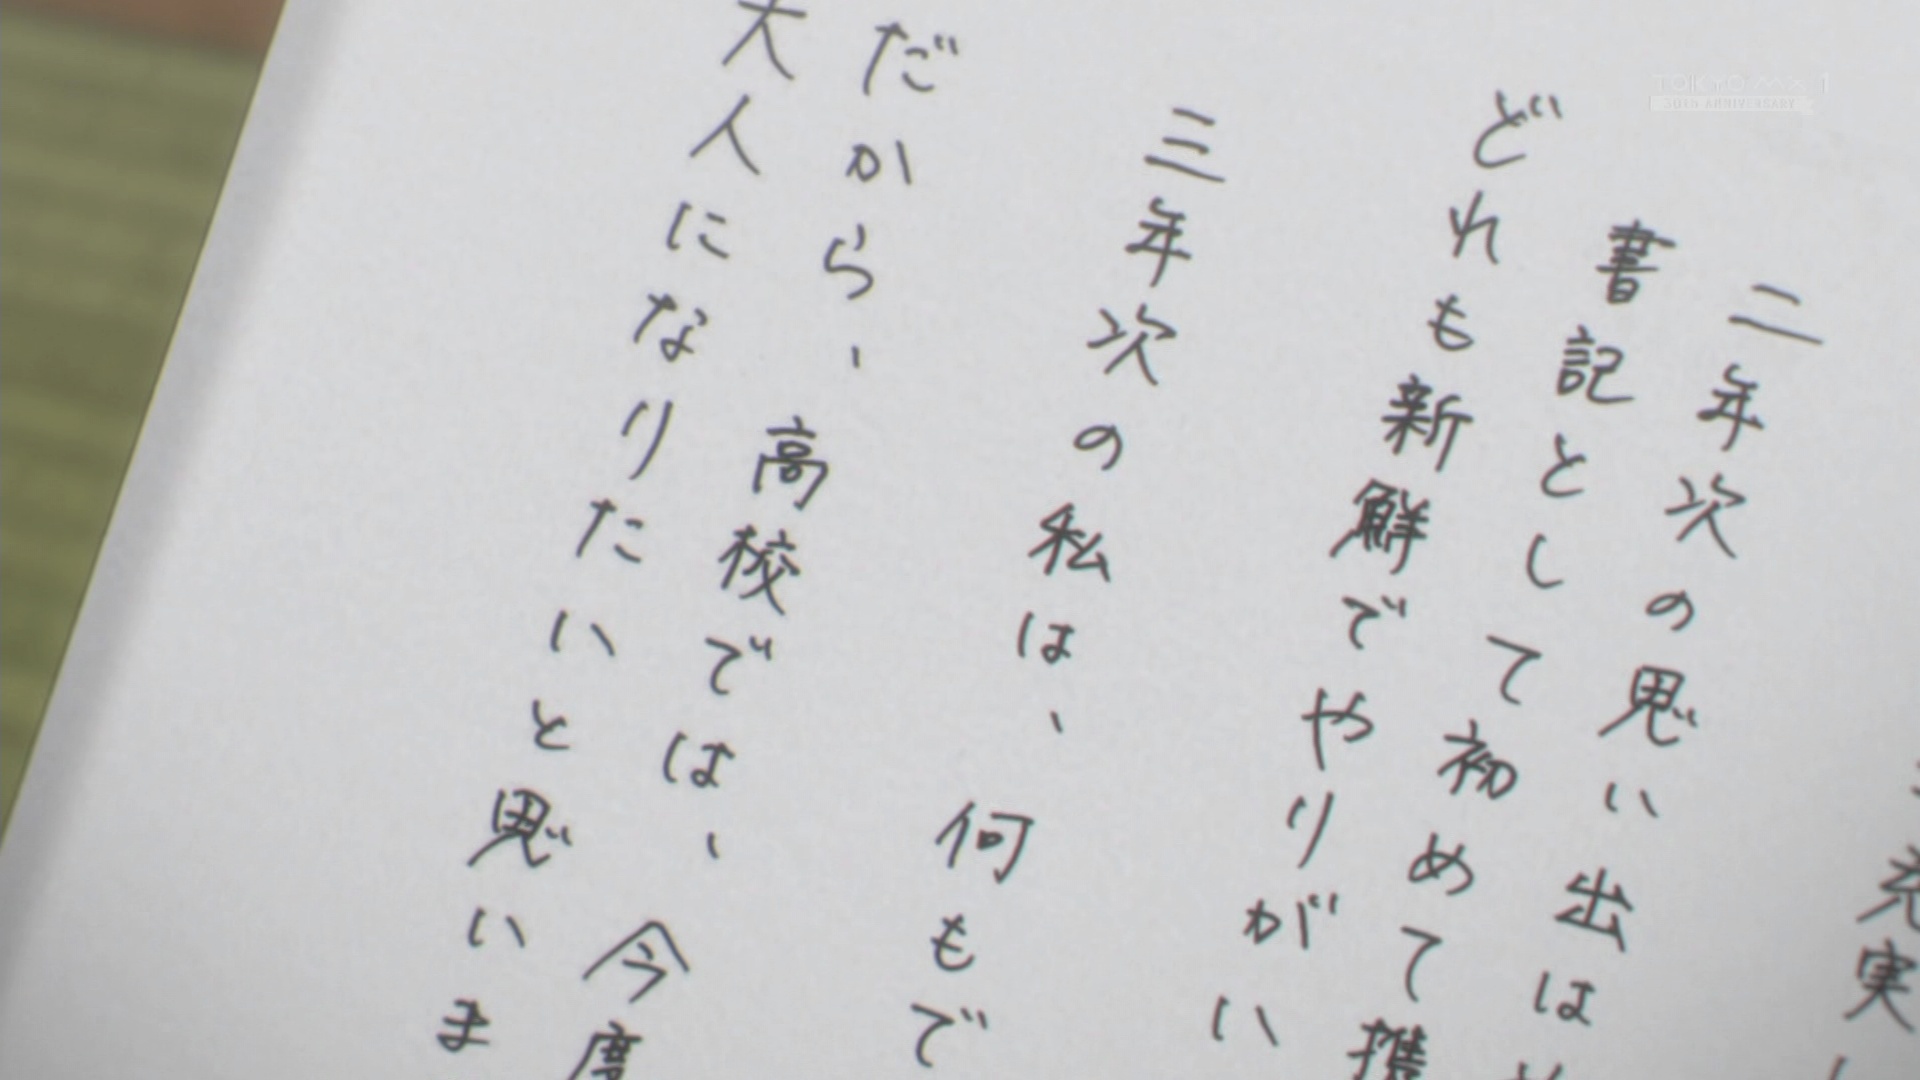 充実し
二年次の思い出は
書記として初めて携
どれも新鮮でやりがい
三年次の私は、何もで
だから、高校では、今度
大人になりたいと思いま
TOKYO MX 1
20TH ANNIVERSARY